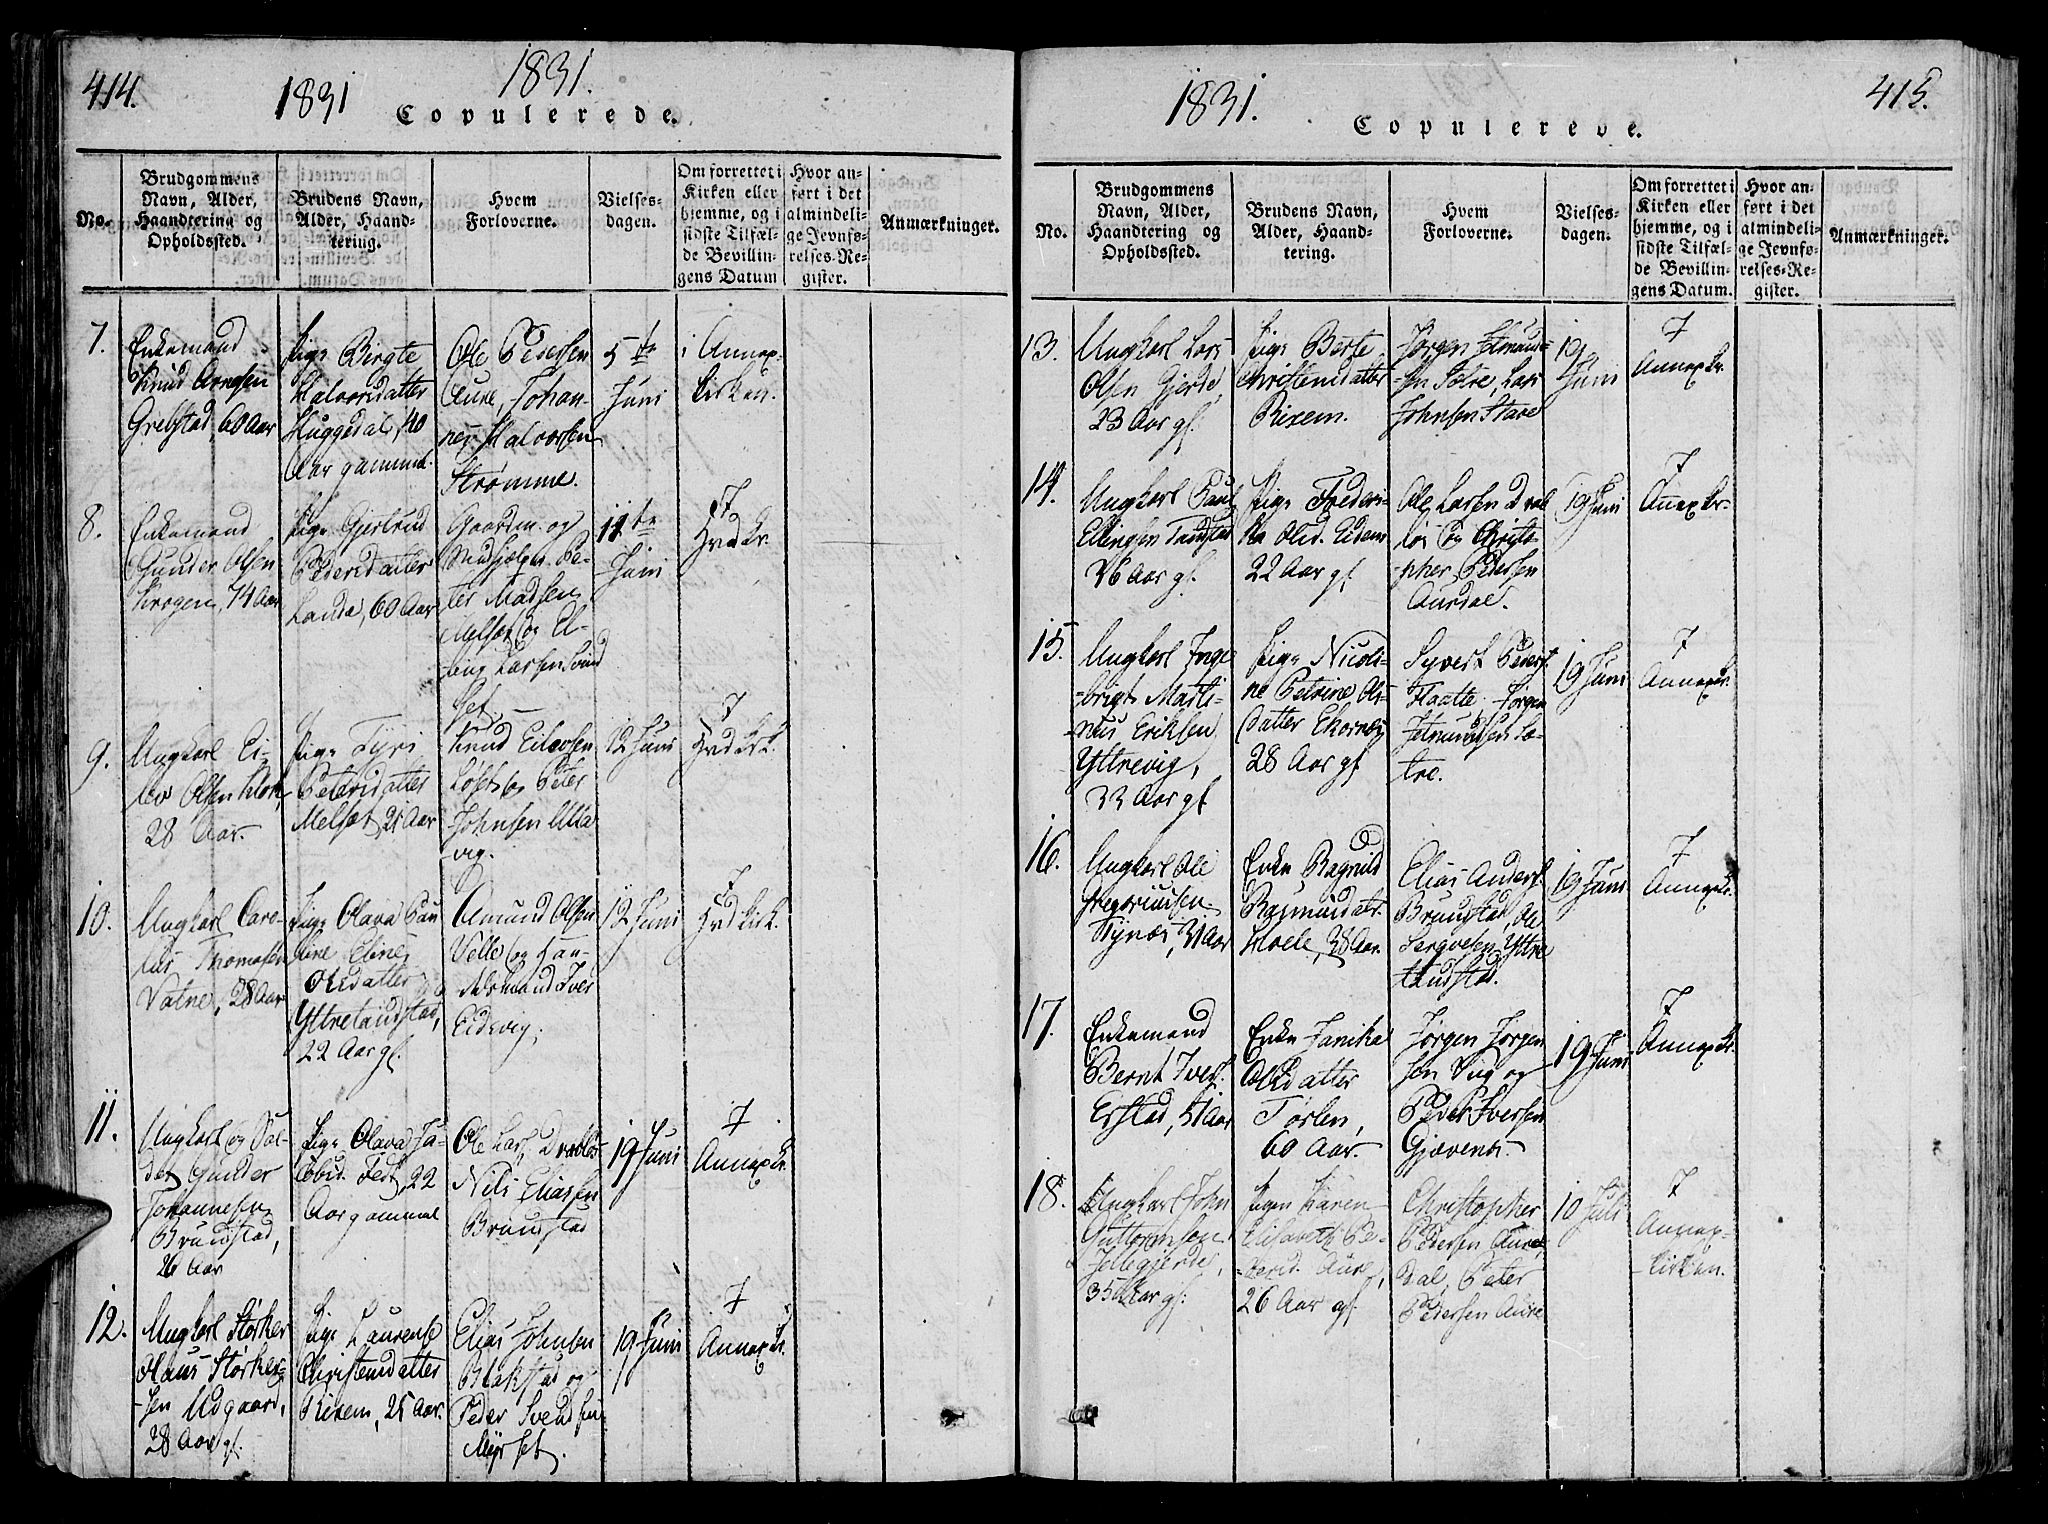 414.
1831
1831.
Copulerede.
No.
Brudgommens
Navn, Alder,
Haandtering og
Opholdssted.
Brudens Navn,
Alder, Haand-
tering.
Hvem
Forloverne.
Vielses-
dagen.
Om forrettet i
Kirken eller
hjemme, og i
sidste Tilfæl-
de Bevillin-
gens Datum
Hvor an-
ført i det
almindeli-
ge Jevnfø-
relses-Re-
gister.
Anmærkninger.
7.
Enkemand
Knud Arnesen
Grebstad, 60 Aar
Pige Birgte
Halvorsdatter
Huggedal, 40
Aar gammel.
Ole Pedersen
Aure, Johan-
nes Halvorsen
Strømme.
5te
Juni
i Annex-
kirken.
8.
Enkemand
Gunder Olsen
Krogen, 74 Aar
Pige Gjertrud
Pedersdatter
Landa, 60 Aar
Gaardm. og
Medhjelper Pe-
ter Madsen
Melsæt og El-
ling Larsen Svind
set.
11te
Juni
i
Hvdkr.
9.
Ungkarl Ei-
lev Olsen Klok
28 Aar.
Pige Tyri
Petersdatter
Melsæt, 21 Aar
Knud Eilevsen
Løset og Peter
Johnsen Ulla
vig.
12 Juni
i
Hvdkrk.
10.
Ungkarl Caro-
lus Thomasen
Vatne, 28 Aar
Pige Olava Pau
line Eline
Olsdatter
Yttretandstad,
22 Aar gl.
Amund Olsen
Velle og Han-
delsmand Iver
Eidsvig.
12 Juni
i
Hvdkirk.
11.
Ungkarl og Sol-
dat Gunder
Johannesen
Brundstad,
26 Aar
Pige Olava Ja-
cobsd. Fedt, 22
Aar gammel
Ole Lars. Dravløs
Nils Eliassen
Brunstad
19 Juni
i
Annexkr.
12.
Ungkarl Størker
Olaus Størker-
sen Udgaard,
28 Aar gl.
Pige Laurense
Christensdatter
Rixem, 25 Aar.
Elias Johnsen
Blakstad og
Peder Svendsen
Myrset.
19 Juni
i
Annexkr.
1831.
415.
Copulerede.
No.
Brudgommens
Navn, Alder,
Haandtering og
Opholdssted.
Brudens Navn,
Alder, Haand-
tering.
Hvem
Forloverne.
Vielses-
dagen.
Om forrettet i
Kirken eller
hjemme, og i
sidste Tilfæl-
de Bevillin-
gens Datum.
Hvor an-
ført i det
almindeli-
ge Jevnfø-
relses-Re-
gister.
Anmærkninger.
13.
Ungkarl Lars
Olsen Gjerde,
23 Aar gl.
Pige Berte
Christensdatter
Rixem.
Jørgen Jetmund-
sen Sætre, Lars
Johnsen Stave
19
Juni
i
Annexkr.
14.
Ungkarl Paul
Ellingsen Tandstad
26 Aar gl.
Pige Frederi-
ka Olsd. Eidem
22 Aar gl.
Ole Larsen Drav
løs og Christo-
pher Pedersen
Auredal.
19 Juni
i
Anexkr.
15.
Ungkarl Inge
brigt Marti-
nus Eriksen
Yttrevig,
33 Aar gl.
Pige Nicoli-
ne Petrine Ols-
datter Ekornæs
28 Aar gl.
Syvert Peders.
Flaatte, Jørgen
Jetmundsen Sæ-
tre.
19 Juni
i
Annexkr.
16.
Ungkarl Ole
Gregoriusen
Rynæs, 31 Aar
Enke Ragnild
Rasmusdatr.
Hole, 38 Aar.
Elias Anders.
Brundstad, Ole
Yttre
tandstad.
19 Juni
i
Annexkr.
17.
Enkemand
Bernt Ivers.
Erstad, 51 Aar
Enke Janika
Olsdatter
Tørlen,
60 Aar.
Jørgen Jørgen
sen Viig og
Peder Iversen
Gjævenes.
19 Juni
i
Annexkr.
18.
Ungkarl John
Guttormsen
Jellegjerde,
35 Aar gl.
Pigen Karen
Elisabeth Pe-
dersd. Aure,
26 Aar gl.
Christopher
Pedersen Aure
dal, Peter
Pedersen Aure
10 Juli
i
Annex-
kirken.